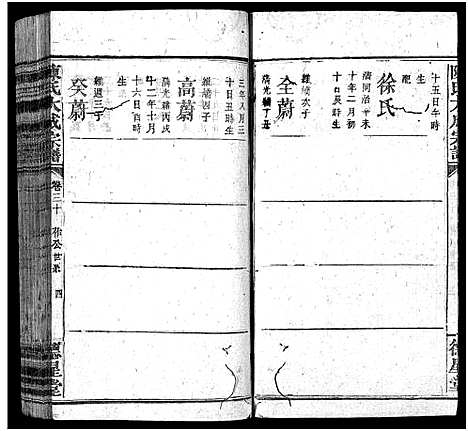 陳氏大成宗譜
十五日午時
生
配
徐氏
清同治辛未
十年二月初
十日辰時生
全蔚
維綺次子
清光緒丁丑
德星堂
三年八月三
十日丑時生
高蔚
維綺四子
清光緒丙戌
十二年十月
十六日酉時
生
癸蔚
維週三子
陳氏大成宗譜
卷三十
公世系
四
德星堂